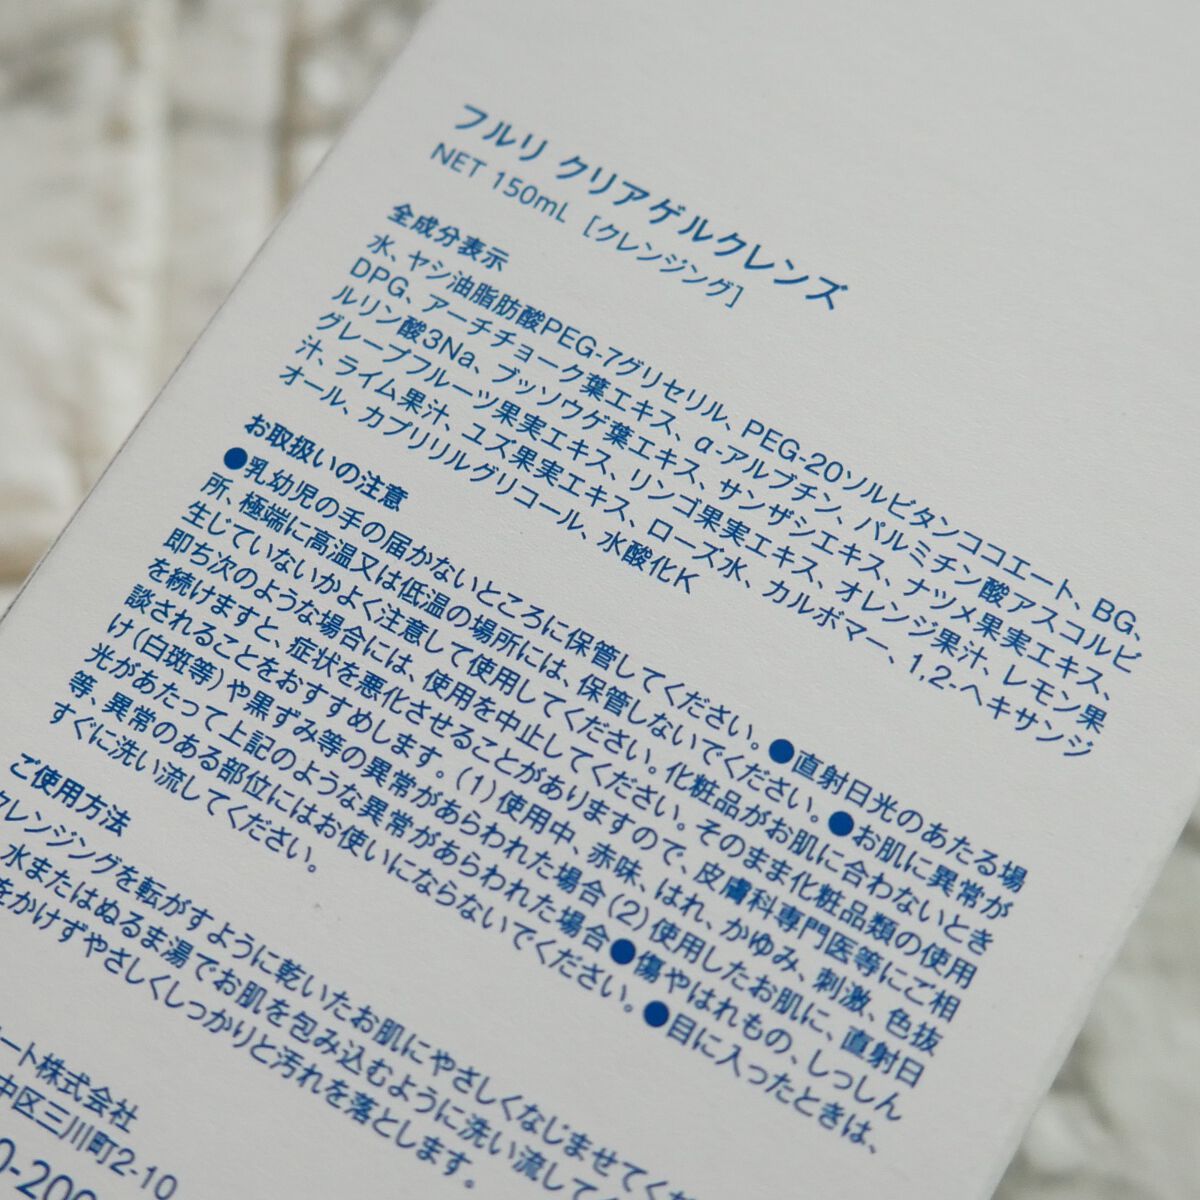 フルリ クリアゲルクレンズ
NET 150mL [クレンジング]
全成分表示
水、ヤシ油脂肪酸PEG-7グリセリル、PEG-20ソルビタンココエート、BG、
DPG、アーチチョーク葉エキス、α-アルブチン、パルミチン酸アスコルビ
ルリン酸3Na、ブッソウゲ葉エキス、サンザシエキス、ナツメ果実エキス、
グレープフルーツ果実エキス、リンゴ果実エキス、オレンジ果汁、レモン果
汁、ライム果汁、ユズ果実エキス、ローズ水、カルボマー、1,2-ヘキサンジ
オール、カプリリルグリコール、水酸化K
お取扱いの注意
●乳幼児の手の届かないところに保管してください。●直射日光のあたる場
所、極端に高温又は低温の場所には、保管しないでください。●お肌に異常が
生じていないかよく注意して使用してください。化粧品がお肌に合わないとき
即ち次のような場合には、使用を中止してください。そのまま化粧品類の使用
を続けますと、症状を悪化させることがありますので、皮膚科専門医等にご相
談されることをおすすめします。(1)使用中、赤味、はれ、かゆみ、刺激、色抜
け(白斑等)や黒ずみ等の異常があらわれた場合(2)使用したお肌に、直射日
光があたって上記のような異常があらわれた場合●傷やはれもの、しっしん
等、異常のある部位にはお使いにならないでください。●目に入ったときは、
すぐに洗い流してください。
ご使用方法
クレンジングを転がすように乾いたお肌にやさしくなじませてく
水またはぬるま湯でお肌を包み込むように洗い流して
をかけずやさしくしっかりと汚れを落とします。
ート株式会社
中区三川町2-10
0-200